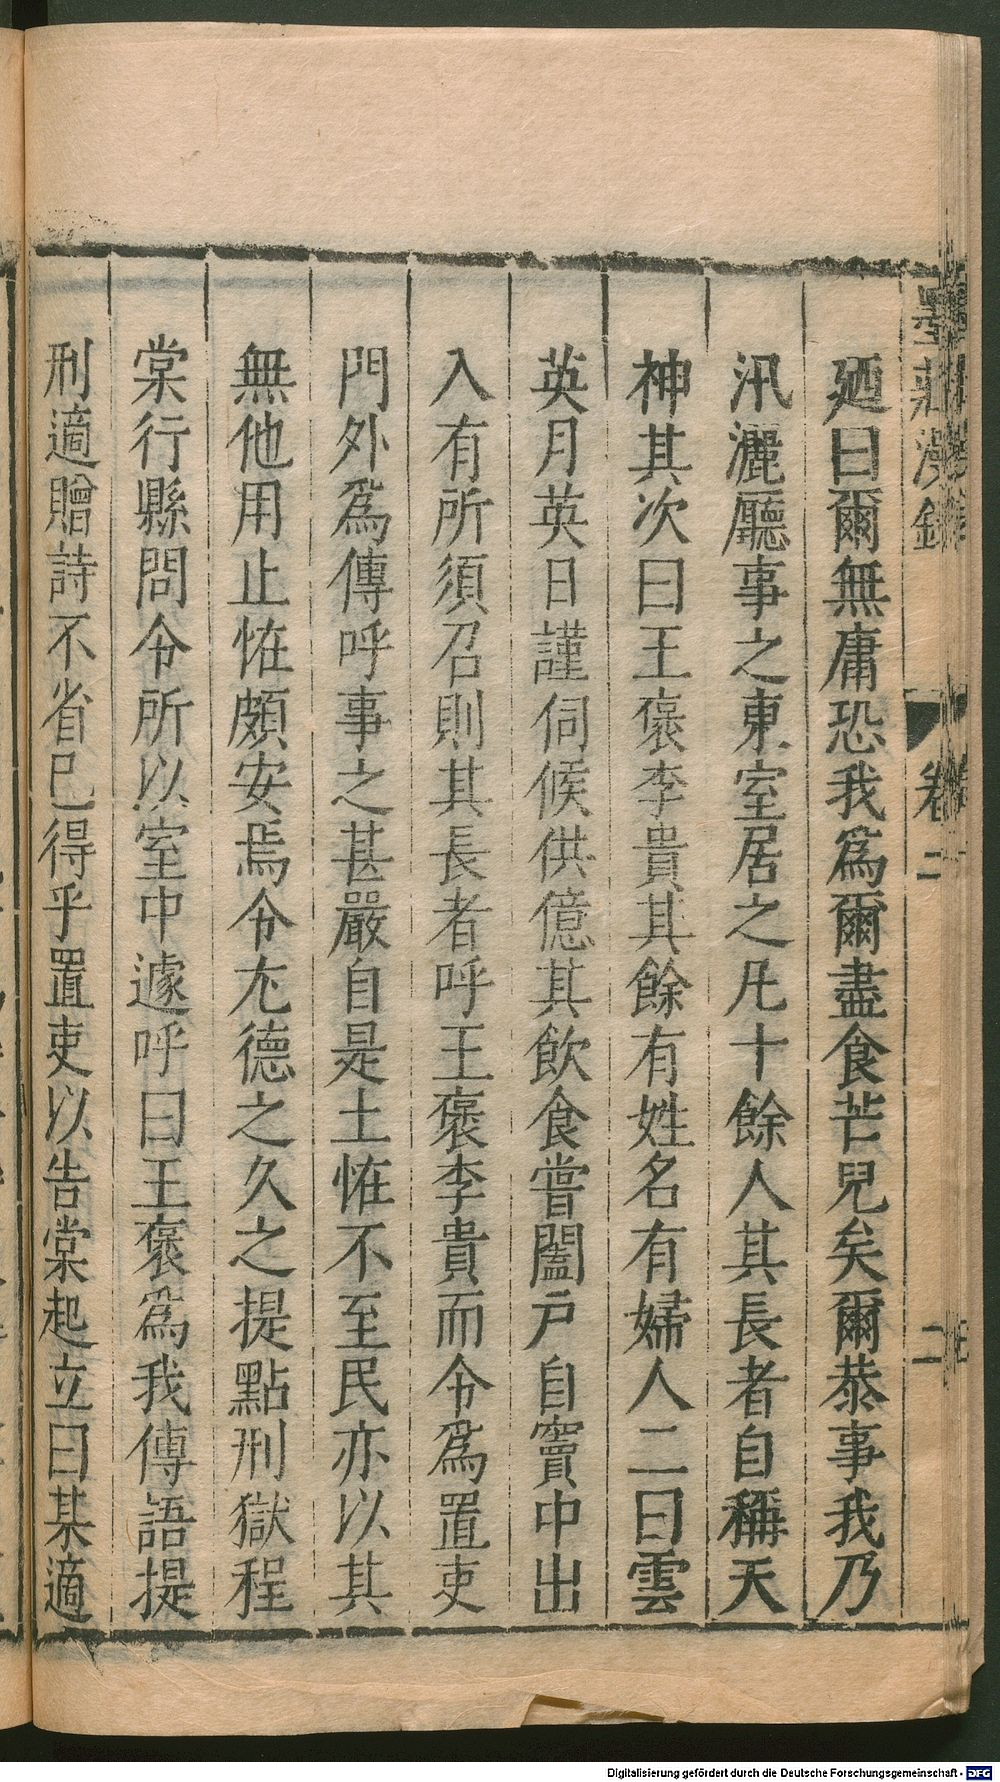 廼曰爾無庸恐我爲爾盡食芒兒矣爾恭事我乃
汛灑廳事之東室居之凡十餘人其長者自稱天
神其次曰王褒李貴其餘有姓名有婦人二曰雲
英月英日謹伺候供億其飲食嘗闔戶自竇中出
入有所須召則其長者呼王褒李貴而令爲置吏
門外爲傳呼事之甚嚴自是土恠不至民亦以其
無他用止恠頗安焉令尤德之久之提點刑獄程
棠行縣問令所以室中遽呼曰王褒爲我傳語提
刑適贈詩不省已得乎置吏以告棠起立曰某適
墨莊漫錄
卷二
二
Digitalisierung gefördert durch die Deutsche Forschungsgemeinschaft - DFG